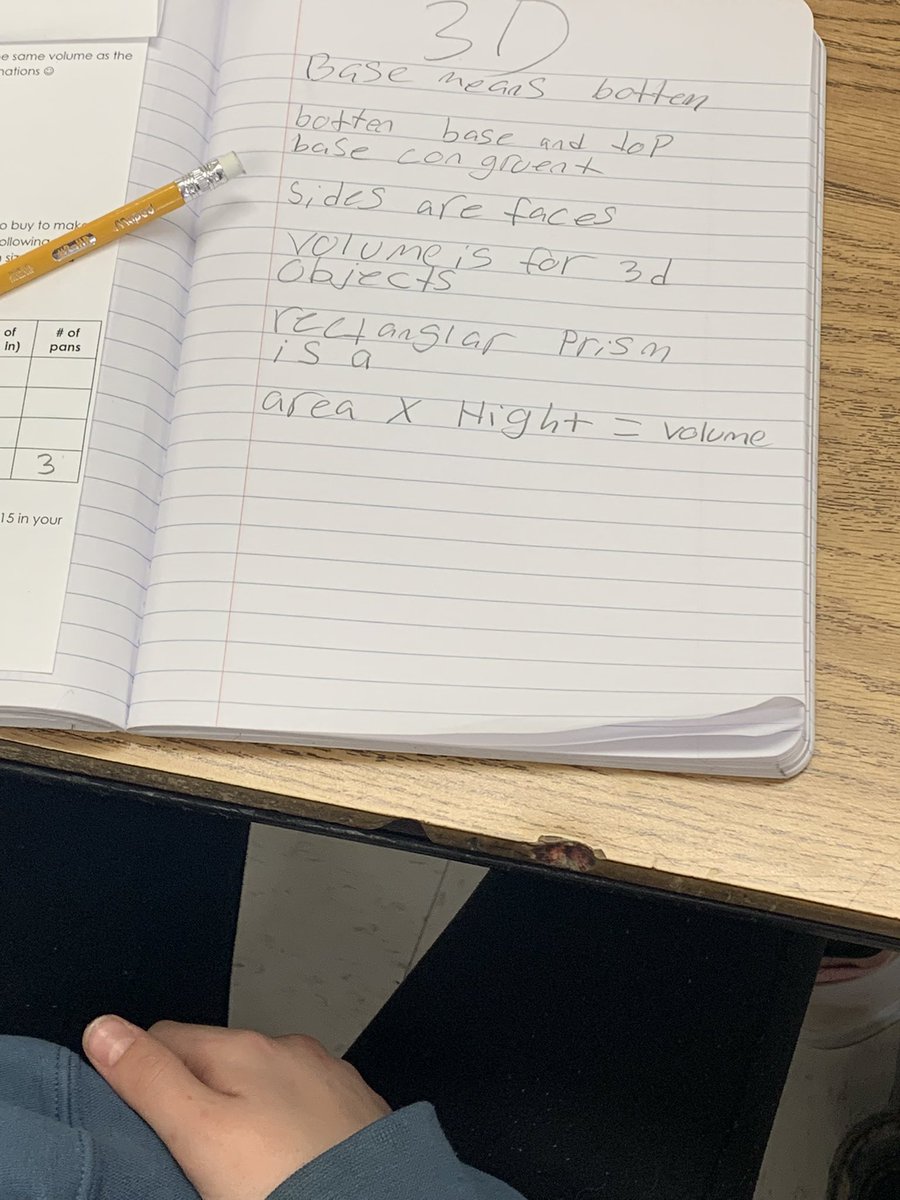 e same volume as the
nations ☺
o buy to make
ollowing
siz
Maped
of
in)
# of
pans
3
15 in your
3D
Base means botten
botten base and top
base congruent
sides are faces
volume is for 3d
objects
rectanglar Prism
is a
area X Hight = volume